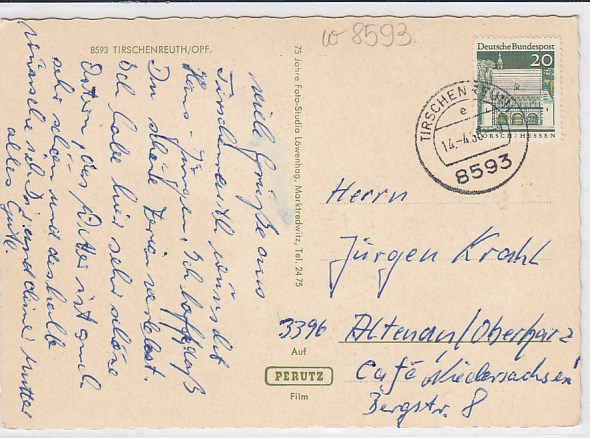 8593 TIRSCHENREUTH/OPF.
w 8593
Deutsche Bundespost
20
LORSCH/HESSEN
TIRSCHENREUTH
e
14.-4.
8593
75 Jahre Foto-Studio Löwenhag, Marktredwitz, Tel. 2475
Viele Grüße aus
Tirschenreuth wünscht
Hans-Jürgen. Ich hoffe, daß
Du schöne Ferien verlebst.
Ich habe hier sehr schöne
Ostern, das Wetter ist auch
sehr schön und deshalb
wünsche ich Dir und deiner Mutter
alles Gute.
Herrn
Jürgen Krahl
3396 Altenau/Oberharz
Café "Niedersachsen"
Bergstr. 8
Auf
PERUTZ
Film